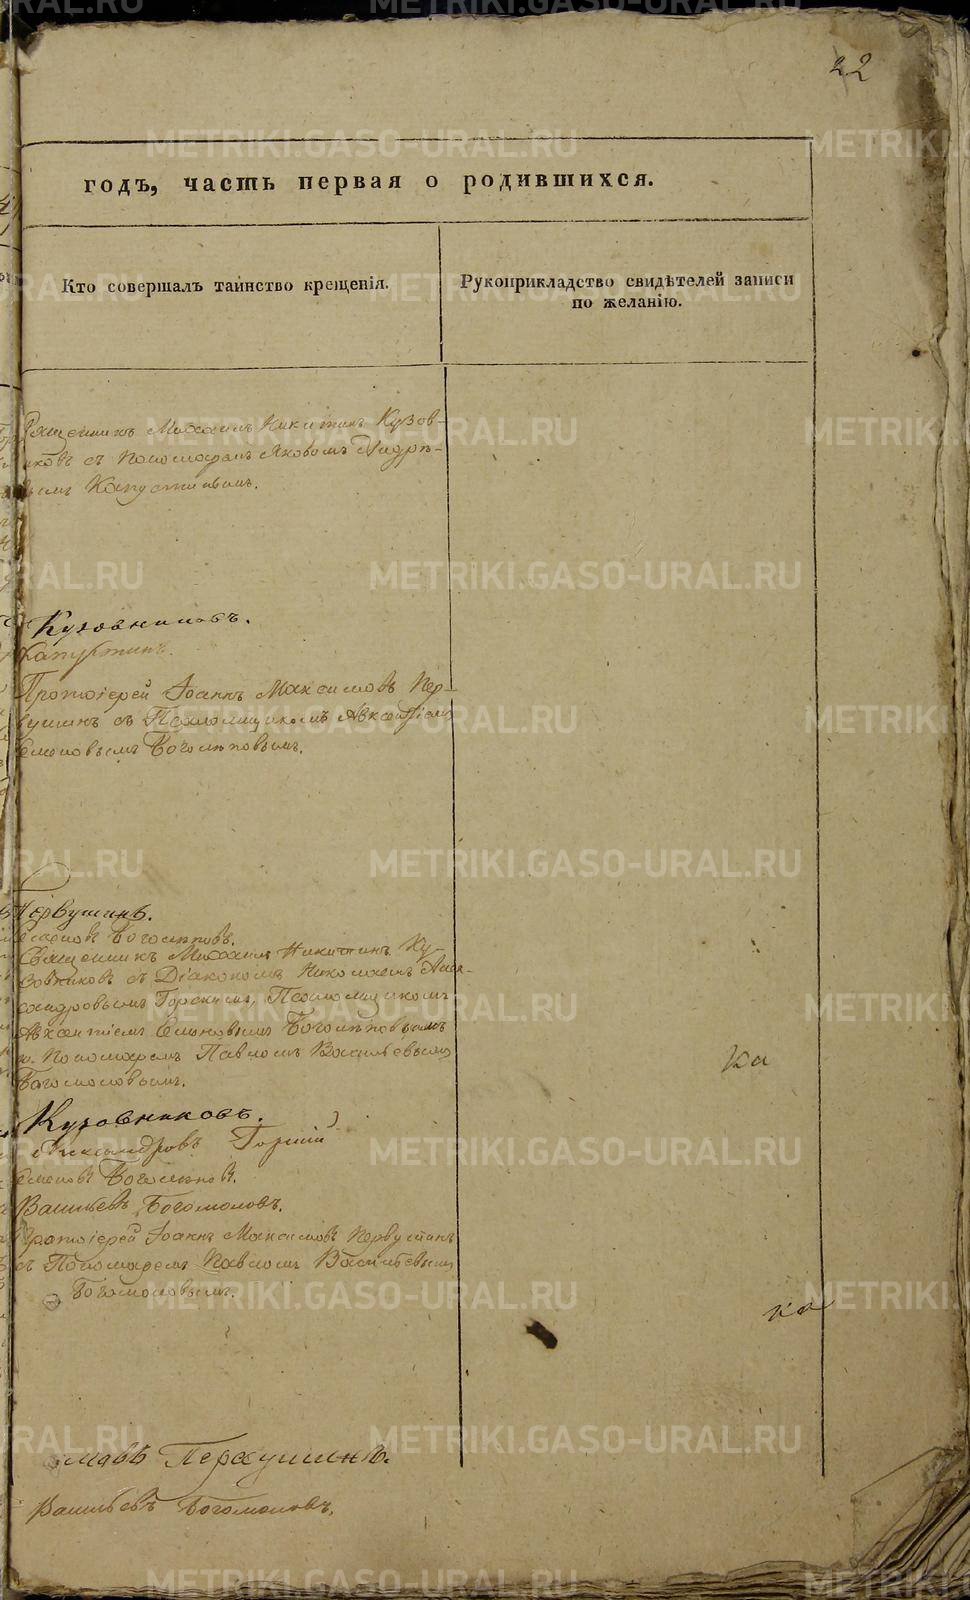 22
годъ, часть первая о родившихся.
Кто совершалъ таинство крещенія.
Рукоприкладство свидѣтелей записи
по желанію.
Священникъ Михаилъ Никитинъ Кузов-
никовъ съ Пономаремъ Яковомъ Андрѣ-
вымъ Капустинымъ.
Кузовниковъ.
Капустинъ.
Протоіерей Іоаннъ Максимовъ Пер-
вушинъ съ Псаломщикомъ Авксентіемъ
Семеновымъ Боголѣповымъ.
Первушинъ.
Семеновъ Боголѣповъ.
Священникъ Михаилъ Никитинъ Ку-
зовниковъ съ Діакономъ Николаемъ Алек-
сандровымъ Горскимъ, Псаломщикомъ
Авксентіемъ Семеновымъ Боголѣповымъ
и Пономаремъ Павломъ Васильевымъ
Богомоловымъ.
Ка
Кузовниковъ.
Александровъ Горскій
Семеновъ Боголѣповъ.
Васильевъ Богомоловъ.
Протоіерей Іоаннъ Максимовъ Первушинъ
съ Пономаремъ Павломъ Васильевымъ
Богомоловымъ.
ка
Первушинъ.
Васильевъ Богомоловъ.
METRIKI.GASO-URAL.RU